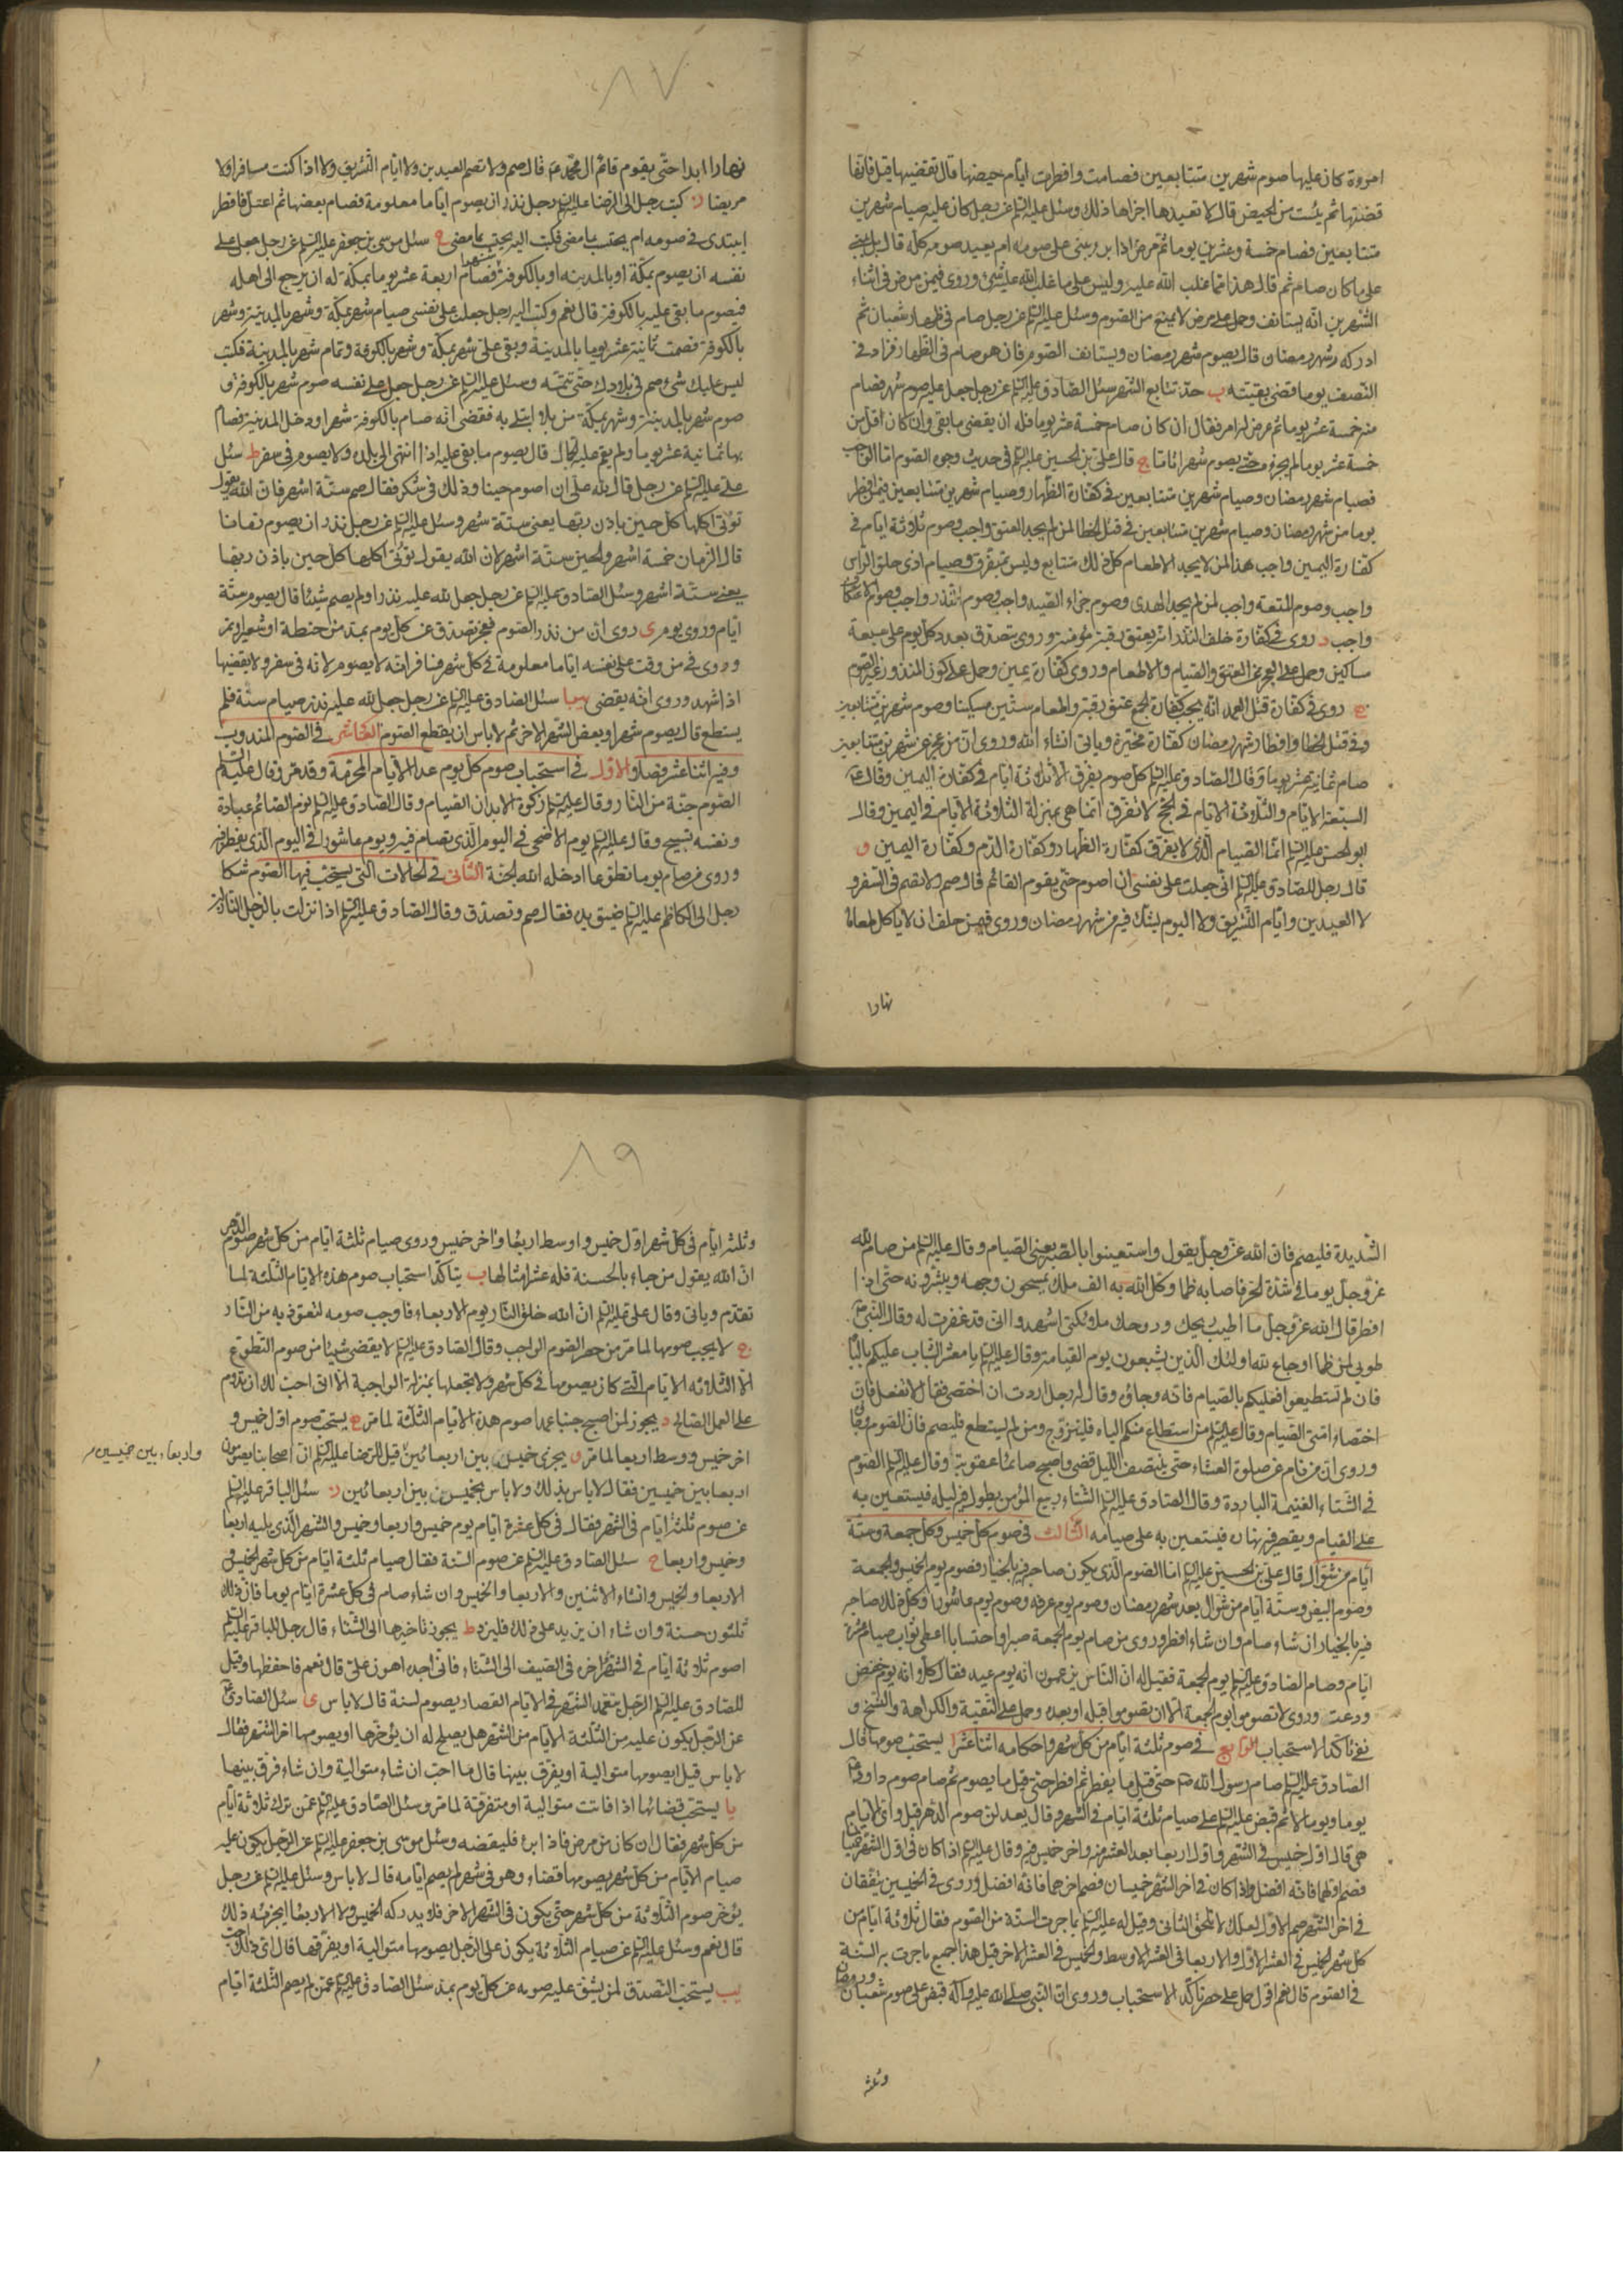 امرءة كان عليها صوم شهرين متتابعين فصامت وافطرت ايام حيضها قال تقضيها قيل فانها
قضتها ثم يئست من الحيض قال لا تعيدها اجزاها ذلك وسئل عليه السلم عن رجل كان عليه صيام شهرين
متتابعين فصام خمسة وعشرين يوما ثم مرض اذا برء يبنى على صومه ام يعيد صومه كله قال بل يبنى
على ما كان صام ثم قال هذا مما غلب الله عليه وليس على ما غلب الله عليه شئ وروى فيمن مرض فى اثناء
الشهرين انه يستانف وحمل على مرض لا يمنع من الصوم وسئل عليه السلم عن رجل صام فى ظهار شعبان ثم
ادركه شهر رمضان قال يصوم شهر رمضان ويستانف الصوم فان هو صام فى الظهار فزاد فى
النصف يوما قضى بقيته ب حد تتابع الشهر سئل الصادق عليه السلم عن رجل جعل عليه صوم شهر فصام
منه خمسة عشر يوما ثم عرض له امر فقال ان كان صام خمسة عشر يوما فله ان يقضى ما بقى وان كان اقل من
خمسة عشر يوما لم يجزه حتى يصوم شهرا تاما ج قال على بن الحسين عليه السلم فى حديث وجوه الصوم اما الواجب
فصيام شهر رمضان وصيام شهرين متتابعين فى كفارة الظهار وصيام شهرين متتابعين فيمن افطر
يوما من شهر رمضان وصيام شهرين متتابعين فى قتل الخطا لمن لم يجد العتق واجب وصوم ثلاثة ايام فى
كفارة اليمين واجب هذا لمن لا يجد الاطعام كل ذلك متتابع وليس بمتفرق وصيام اذى حلق الراس
واجب وصوم المتعة واجب لمن لم يجد الهدى وصوم جزاء الصيد واجب وصوم النذر واجب وصوم الاعتكاف
واجب د روى فى كفارة خلف النذر انه يعتق رقبة مؤمنة وروى يتصدق بعدد كل يوم على سبعة
مساكين وحمل على العجز عن العتق والصيام والاطعام وروى كفارة يمين وحمل على كون المنذور غير الصوم
ه روى فى كفارة قتل العمد انه يجب كفارة الجمع عتق رقبة واطعام ستين مسكينا وصوم شهرين متتابعين
وفى قتل الخطا وافطار شهر رمضان كفارة مخيرة وياتى انشاء الله وروى ان من عجز عن شهرين متتابعين
صام ثمانية عشر يوما وقال الصادق عليه السلم كل صوم يفرق الا ثلاثة ايام فى كفارة اليمين وقال ع
السبعة الايام والثلاثة الايام فى الحج لا تفرق انما هى بمنزلة الثلاثة الايام فى اليمين وقال
ابو الحسن عليه السلم انما الصيام الذى لا يفرق كفارة الظهار وكفارة الدم وكفارة اليمين و
قال رجل للصادق عليه السلم انى جعلت على نفسى ان اصوم حتى يقوم القائم قال صم ولا تصم فى السفر و
لا العيدين وايام التشريق ولا اليوم يشك فيه من شهر رمضان وروى فيمن حلف ان لا ياكل طعاما
نهارا
٨٧
نهارا ابدا حتى يقوم قائم ال محمد ع قال صم ولا تصم العيدين ولا ايام التشريق ولا اذا كنت مسافرا ولا
مريضا ز كتب رجل الى الرضا عليه السلم رجل نذر ان يصوم اياما معلومة فصام بعضها ثم اعتل فافطر
ايبتدى فى صومه ام يحتسب بما مضى فكتب اليه يحتسب بما مضى ح سئل موسى بن جعفر عليه السلم عن رجل جعل على
نفسه ان يصوم بمكة او بالمدينه او بالكوفة شهرا فصام اربعة عشر يوما بمكة له ان يرجع الى اهله
فيصوم ما بقى عليه بالكوفة قال نعم وكتب اليه رجل جعلت على نفسى صيام شهر بمكة وشهر بالمدينة وشهر
بالكوفة فصمت ثمانية عشر يوما بالمدينة وبقى على شهر بمكة وشهر بالكوفة وتمام شهر بالمدينة فكتب
ليس عليك شئ صم فى بلادك حتى تتمه وسئل عليه السلم عن رجل جعل على نفسه صوم شهر بالكوفة و
صوم شهر بالمدينة وشهر بمكة من بلاء ابتلى به فقضى انه صام بالكوفة شهرا ودخل المدينة فصام
بها ثمانية عشر يوما ولم يقم عليه الجمال قال يصوم ما بقى عليه اذا انتهى الى بلده ولا يصوم فى سفر ط سئل
على عليه السلم عن رجل قال لله على ان اصوم حينا وذلك فى شكر فقال صم ستة اشهر فان الله يقول
تؤتى اكلها كل حين باذن ربها يعنى ستة شهر وسئل عليه السلم عن رجل نذر ان يصوم زمانا
قال الزمان خمسة اشهر والحين ستة اشهر لان الله يقول تؤتى اكلها كل حين باذن ربها
يعنى ستة اشهر وسئل الصادق عليه السلم عن رجل جعل لله عليه نذرا ولم يصم شيئا قال يصوم ستة
ايام وروى يوم ى روى ان من نذر الصوم فعجز تصدق عن كل يوم بمد من حنطة او شعير او تمر
وروى فى من وقت على نفسه اياما معلومة فى كل شهر فسافر انه لا يصوم لانه فى سفر ولا يقضيها
اذا شهد وروى انه يقضى يا سئل الصادق عليه السلم عن رجل جعل لله عليه نذر صيام سنة فلم
يستطع قال يصوم شهرا وبعض الشهر الاخر ثم لا باس ان يقطع الصوم العاشر فى الصوم المندوب
وفيه اثنا عشر فصلا الاول فى استحباب صوم كل يوم عدا الايام المحرمة وقد مر وقال عليه السلم
الصوم جنة من النار وقال عليه السلم زكوة الابدان الصيام وقال الصادق عليه السلم نوم الصائم عبادة
ونفسه تسبيح وقال عليه السلم يوم الاضحى فى اليوم الذى يصام فيه ويوم عاشورا فى اليوم الذى يفطر فيه
وروى من صام يوما تطوعا ادخله الله الجنة الثانى فى الحالات التى يستحب فيها الصوم شكا
رجل الى الكاظم عليه السلم ضيق يده فقال صم وتصدق وقال الصادق عليه السلم اذا نزلت بالرجل النازلة
الشديدة فليصم فان الله عز وجل يقول واستعينوا بالصبر يعنى الصيام وقال عليه السلم من صام لله
عز وجل يوما فى شدة الحر فاصابه ظما وكل الله به الف ملك يمسحون وجهه ويبشرونه حتى اذا
افطر قال الله عز وجل ما اطيب ريحك وروحك ملائكتى اشهدوا انى قد غفرت له وقال النبى ص
طوبى لمن ظما او جاع لله اولئك الذين يشبعون يوم القيامة وقال عليه السلم يا معشر الشباب عليكم بالباه
فان لم تستطيعوا فعليكم بالصيام فانه وجاؤه وقال له رجل اردت ان اختصى فقال لا تفعل فان
اختصاء امتى الصيام وقال عليه السلم من استطاع منكم الباه فليتزوج ومن لم يستطع فليصم فان الصوم له وجا
وروى ان من نام عن صلوة العشاء حتى ينتصف الليل قضى واصبح صائما عقوبة وقال عليه السلم الصوم
فى الشتاء الغنيمة الباردة وقال الصادق عليه السلم الشتاء ربيع المؤمن يطول فيه ليله فيستعين به
على القيام ويقصر فيه نهاره فيستعين به على صيامه الثالث فى صوم كل خميس وكل جمعة وستة
ايام من شوال قال على بن الحسين عليه السلم اما الصوم الذى يكون صاحبه فيه بالخيار فصوم يوم الخميس والجمعة
وصوم البيض وستة ايام من شوال بعد شهر رمضان وصوم يوم عرفه وصوم يوم عاشورا وكل ذلك صاحبه
فيه بالخيار ان شاء صام وان شاء افطر وروى من صام يوم الجمعة صبرا واحتسابا اعطى ثواب صيام عشرة
ايام وصام الصادق عليه السلم يوم الجمعة فقيل له ان الناس يزعمون انه يوم عيد فقال كلا انه يوم خفض
ودعة وروى لا تصوموا يوم الجمعة الا ان تصوموا قبله او بعده وحمل على التقية والكراهة والنسخ و
نفى تاكد الاستحباب الرابع فى صوم ثلثة ايام من كل شهر واحكامه اثنا عشر ا يستحب صومها قال
الصادق عليه السلم صام رسول الله ص حتى قيل ما يفطر ثم افطر حتى قيل ما يصوم ثم صام صوم داود ع
يوما ويوما لا ثم قبض عليه السلم على صيام ثلثة ايام فى الشهر وقال يعدلن صوم الدهر قيل واى الايام
هى قال اول خميس فى الشهر واول اربعا بعد العشر منه واخر خميس فيه وقال عليه السلم اذا كان فى اول الشهر خميسان
فصم اولهما فانه افضل واذا كان فى اخر الشهر خميسان فصم اخرهما فانه افضل وروى فى الخميسين يتفقان
فى اخر الشهر صم الاول فلعلك لا تلحق الثانى وقيل له عليه السلم بما جرت السنة من الصوم فقال ثلاثة ايام من
كل شهر الخميس فى العشر الاول والاربعا فى العشر الاوسط والخميس فى العشر الاخر قيل هذا جميع ما جرت به السنة
فى الصوم قال نعم اقول حمل على حصر تاكد الاستحباب وروى ان النبى صلى الله عليه وآله قبض على صوم شعبان ورمضان
وثلثة
٨٩
وثلثة ايام فى كل شهر اول خميس واوسط اربعا واخر خميس وروى صيام ثلثة ايام من كل شهر صوم الدهر
ان الله يقول من جاء بالحسنة فله عشر امثالها ب يتاكد استحباب صوم هذه الايام الثلثة لما
تقدم وياتى وقال على عليه السلم ان الله خلق النار يوم الاربعاء فاوجب صومه لتعوذ به من النار
ج لا يجب صومها لما مر من حصر الصوم الواجب وقال الصادق عليه السلم لا يقضى شيئا من صوم التطوع
الا الثلاثه الايام التى كان يصومها فى كل شهر ولا يجعلها بمنزلة الواجبة الا انى احب لك ان تدوم
على العمل الصالح د يجوز لمن اصبح جنبا عمدا صوم هذه الايام الثلثة لما مر ه يستحب صوم اول خميس و
اخر خميس ووسط اربعا لما مر و يجزى خميس بين اربعائين قيل للرضا عليه السلم ان اصحابنا يصومون
واربعاء بين خميسين
اربعا بين خميسين فقال لا باس بذلك ولا باس بخميس بين اربعائين ز سئل الباقر عليه السلم
عن صوم ثلثة ايام فى الشهر فقال فى كل عشرة ايام يوم خميس واربعا وخميس والشهر الذى يليه اربعا
وخميس واربعا ح سئل الصادق عليه السلم عن صوم السنة فقال صيام ثلثة ايام من كل شهر الخميس و
الاربعا والخميس وان شاء الاثنين والاربعا والخميس وان شاء صام فى كل عشرة ايام يوما فان ذلك
ثلثون حسنة وان شاء ان يزيد على ذلك فليزد ط يجوز تاخيرها الى الشتاء قال رجل للباقر عليه السلم
اصوم ثلاثة ايام فى الشهر اؤخره فى الصيف الى الشتاء فانى اجده اهون على قال نعم فاحفظها وقيل
للصادق عليه السلم الرجل يتعمد الشهر فى الايام القصار يصوم لسنة قال لا باس ى سئل الصادق ع
عن الرجل يكون عليه من الثلثة الايام من الشهر هل يصلح له ان يؤخرها او يصومها اخر الشهر فقال
لا باس قيل ايصومها متوالية او يفرق بينها قال ما احب ان شاء متوالية وان شاء فرق بينها
يا يستحب قضائها اذا فاتت متوالية او متفرقة لما مر وسئل الصادق عليه السلم عمن ترك ثلاثة ايام
من كل شهر فقال ان كان من مرض فاذا برئ فليقضه وسئل موسى بن جعفر عليه السلم عن الرجل يكون عليه
صيام الايام من كل شهر يصومها قضاء وهو فى شهر لم يصم ايامه قال لا باس وسئل عليه السلم عن رجل
يؤخر صوم الثلاثة من كل شهر حتى يكون فى الشهر الاخر فلا يدركه الخميس ولا الاربعا ايجزيه ذلك
قال نعم وسئل عليه السلم عن صيام الثلاثة يكون على الرجل يصومها متوالية او يفرقها قال اى ذلك احب
يب يستحب التصدق لمن يشق عليه صومه عن كل يوم بمد سئل الصادق عليه السلم عمن لم يصم الثلثة ايام